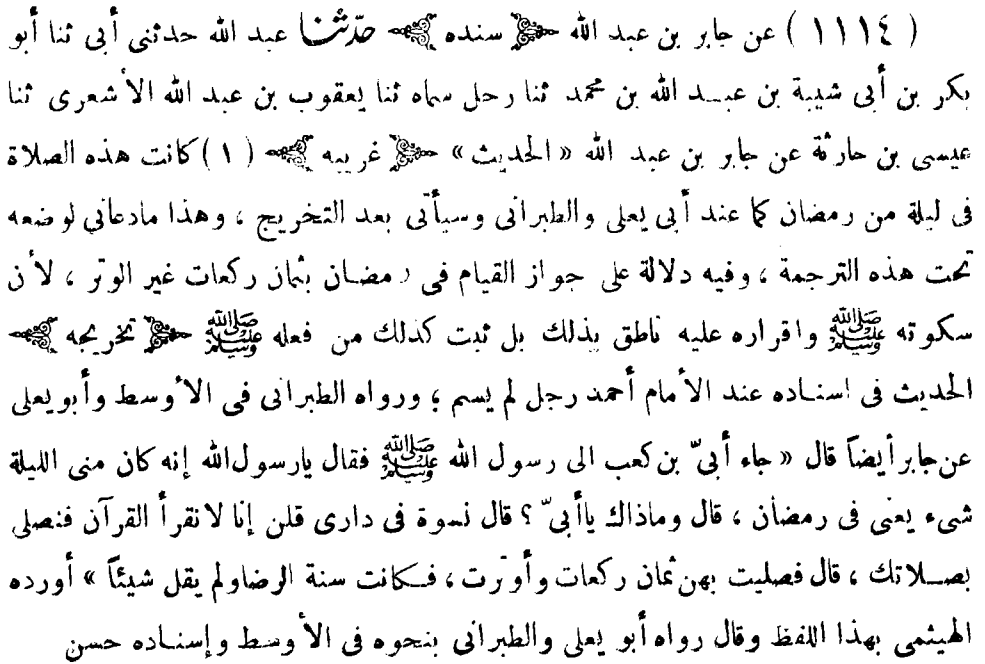 ( ١١١٤ ) عن جابر بن عبد الله ﴿ سنده ﴾ حدّثنا عبد الله حدثنى أبى ثنا أبو
بكر بن أبى شيبة بن عبد الله بن محمد ثنا رحل سماه ثنا يعقوب بن عبد الله الأشعرى ثنا
عيسى بن حارثة عن جابر بن عبد الله « الحديث » ﴿ غريبه ﴾ ( ١ ) كانت هذه الصلاة
فى ليلة من رمضان كما عند أبى يعلى والطبرانى وسيأتى بعد التخريج ، وهذا مادعاني لوضعه
تحت هذه الترجمة ، وفيه دلالة على جواز القيام فى رمضان بثمان ركعات غير الوتر ، لأن
سكوته ﷺ واقراره عليه ناطق بذلك بل ثبت كذلك من فعله ﷺ ﴿ تخريجه ﴾
الحديث فى اسناده عند الأمام أحمد رجل لم يسم ؛ ورواه الطبرانى فى الأوسط وأبويعلى
عن جابر أيضاً قال « جاء أبىّ بن كعب الى رسول الله ﷺ فقال يارسول الله إنه كان منى الليلة
شىء يعنى فى رمضان ، قال وماذاك ياأبىّ ؟ قال نسوة فى دارى قلن إنا لانقرأ القرآن فنصلى
بصلاتك ، قال فصليت بهن ثمان ركعات وأوترت ، فكانت سنة الرضاولم يقل شيئاً » أورده
الهيثمى بهذا اللفظ وقال رواه أبو يعلى والطبرانى بنحوه فى الأوسط وإسناده حسن